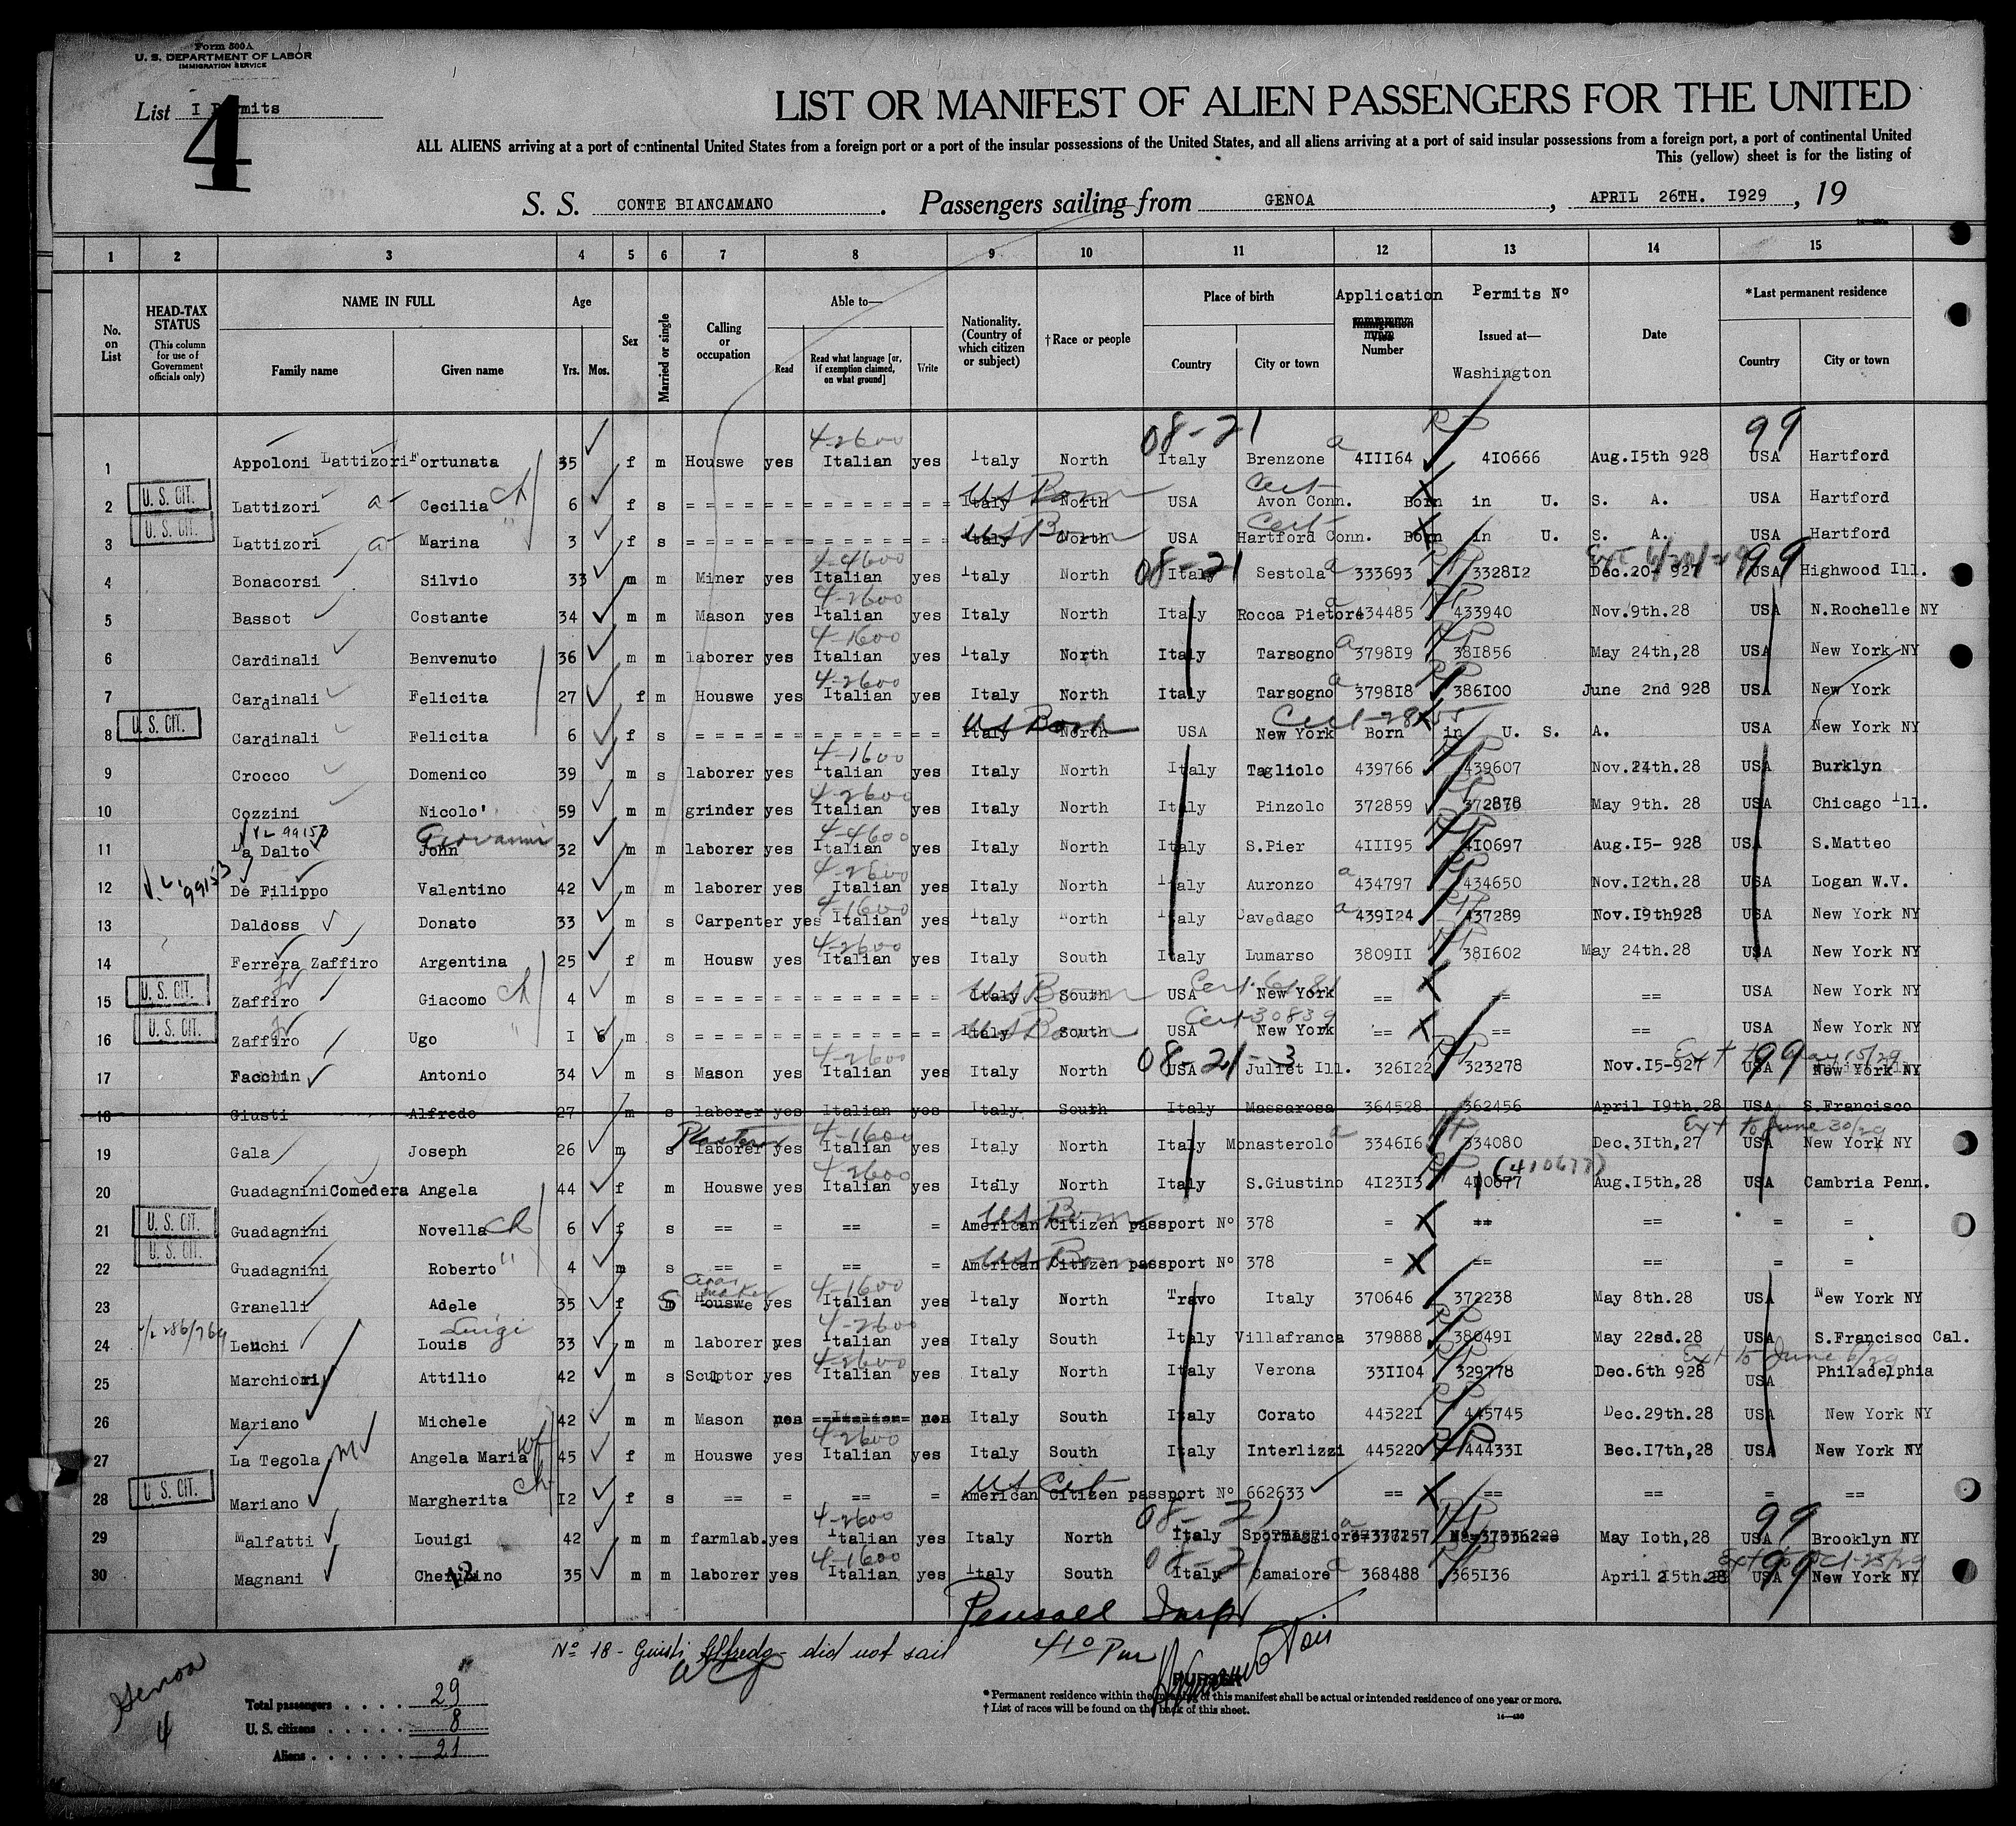 Form 500A
U. S. DEPARTMENT OF LABOR
IMMIGRATION SERVICE
List I Permits
4
LIST OR MANIFEST OF ALIEN PASSENGERS FOR THE UNITED
ALL ALIENS arriving at a port of continental United States from a foreign port or a port of the insular possessions of the United States, and all aliens arriving at a port of said insular possessions from a foreign port, a port of continental United
This (yellow) sheet is for the listing of
S. S. CONTE BIANCAMANO. Passengers sailing from GENOA, APRIL 26TH. 1929, 19
1 2 3 4 5 6 7 8 9 10 11 12 13 14 15
No. on List
HEAD-TAX STATUS
(This column for use of Government officials only)
NAME IN FULL
Family name Given name
Age
Yrs. Mos.
Sex
Married or single
Calling or occupation
Able to—
Read Read what language [or, if exemption claimed, on what ground] Write
Nationality. (Country of which citizen or subject)
†Race or people
Place of birth
Country City or town
Application Number
Permits No
Issued at—
Washington
Date
*Last permanent residence
Country City or town
4-2600 08-21 99
1 Appoloni Lattizori Fortunata 35 f m Houswe yes Italian yes Italy North Italy Brenzone a 411164 410666 Aug.15th 928 USA Hartford
U. S. CIT. US Born Cert
2 Lattizori a- Cecilia ch 6 f s = = = = = = = = = = = = = Italy North USA Avon Conn. Born in U. S. A. USA Hartford
U. S. CIT. US Born Cert
3 Lattizori a- Marina " 3 f s = = = = = = = = = = = = = Italy North USA Hartford Conn. Born in U. S. A. USA Hartford
4-4600 08-21 99
4 Bonacorsi Silvio 33 m m Miner yes Italian yes Italy North Italy Sestola a 333693 332812 Dec.20- 927 USA Highwood Ill.
4-2600
5 Bassot Costante 34 m m Mason yes Italian yes Italy North Italy Rocca Pietore a 434485 433940 Nov.9th.28 USA N.Rochelle NY
4-1600
6 Cardinali Benvenuto 36 m m laborer yes Italian yes Italy North Italy Tarsogno a 379819 381856 May 24th,28 USA New York NY
4-2600
7 Cardinali Felicita 27 f m Houswe yes Italian yes Italy North Italy Tarsogno a 379818 386100 June 2nd 928 USA New York
U. S. CIT. US Born
8 Cardinali Felicita 6 f s = = = = = = = = = = = = = Italy North USA New York Born in U. S. A. USA New York NY
4-1600
9 Crocco Domenico 39 m s laborer yes Italian yes Italy North Italy Tagliolo 439766 439607 Nov.24th.28 USA Burklyn
4-2600
10 Cozzini Nicolo' 59 m m grinder yes Italian yes Italy North Italy Pinzolo 372859 372878 May 9th. 28 USA Chicago Ill.
VL 99153 Giovanni 4-4600
11 Da Dalto John 32 m m laborer yes Italian yes Italy North Italy S.Pier 411195 410697 Aug.15- 928 USA S.Matteo
V.L. 99153 4-2600
12 De Filippo Valentino 42 m m laborer yes Italian yes Italy North Italy Auronzo a 434797 434650 Nov.12th.28 USA Logan W.V.
4-1600
13 Daldoss Donato 33 m s Carpenter yes Italian yes Italy North Italy Cavedago a 439124 437289 Nov.19th928 USA New York NY
4-2600
14 Ferrera Zaffiro Argentina 25 f m Housw yes Italian yes Italy South Italy Lumarso 380911 381602 May 24th.28 USA New York NY
U. S. CIT. US Born
15 Zaffiro Giacomo ch 4 m s = = = = = = = = = = = = = Italy South USA New York == == == USA New York NY
U. S. CIT. US Born Cert-30839
16 Zaffiro Ugo " 1 6 m s = = = = = = = = = = = = = Italy South USA New York == == == USA New York NY
4-2600 08-21-3 99 Ext to May 15/29
17 Facchin Antonio 34 m s Mason yes Italian yes Italy North USA Juliet Ill. 326122 323278 Nov.15-927 USA New York NY
18 Giusti Alfredo 27 m s laborer yes Italian yes Italy South Italy Massarosa 364528 362456 April 19th.28 USA S.Francisco
Plasterer 4-1600 Ext to June 30/29
19 Gala Joseph 26 m s laborer yes Italian yes Italy North Italy Monasterolo a 334616 334080 Dec.31th,27 USA New York NY
4-2600 (410677)
20 Guadagnini Comedera Angela 44 f m Houswe yes Italian yes Italy North Italy S.Giustino 412313 410677 Aug.15th,28 USA Cambria Penn.
U. S. CIT. US Born
21 Guadagnini Novella ch 6 f s == = == = American Citizen passport No 378 = == == = =
U. S. CIT. US Born
22 Guadagnini Roberto " 4 m s == = == = American Citizen passport No 378 = == == = =
4-1600
23 Granelli Adele 35 f S Houswe yes Italian yes Italy North Travo Italy 370646 372238 May 8th.28 USA New York NY
Luigi 4-2600
24 Lenchi Louis 33 m m laborer yes Italian yes Italy South Italy Villafranca 379888 380491 May 22sd.28 USA S.Francisco Cal.
4-2600 Ext to June 6/29
25 Marchiori Attilio 42 m s Sculptor yes Italian yes Italy North Italy Verona 331104 329778 Dec.6th 928 USA Philadelphia
26 Mariano Michele 42 m m Mason Italy South Italy Corato 445221 445745 Dec.29th.28 USA New York NY
4-2600
27 La Tegola Angela Maria wf 45 f m Houswe yes Italian yes Italy South Italy Interlizzi 445220 444331 Bec.17th,28 USA New York NY
U. S. CIT. US Cit
28 Mariano Margherita ch 12 f s == = == = American Citizen passport No 662633 == == == = ==
4-2600 08-21 99
29 Malfatti Louigi 42 m m farmlab. yes Italian yes Italy North Italy Spormaggiore May 10th,28 USA Brooklyn NY
4-1600 08-21 99
30 Magnani Cherubino 35 m m laborer yes Italian yes Italy South Italy Camaiore a 368488 365136 April 25th.28 USA New York NY
Pensall Insp
No 18 - Giusti Alfredo - did not sail
410 Pm
Genoa
4
Total passengers . . . . 29
U. S. citizens . . . . . 8
Aliens . . . . . . 21
PURSER
* Permanent residence within the meaning of this manifest shall be actual or intended residence of one year or more.
† List of races will be found on the back of this sheet.